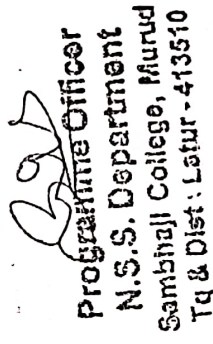 Programme Officer
N.S.S. Department
Sambhaji College, Murud
Tq & Dist : Latur - 413510